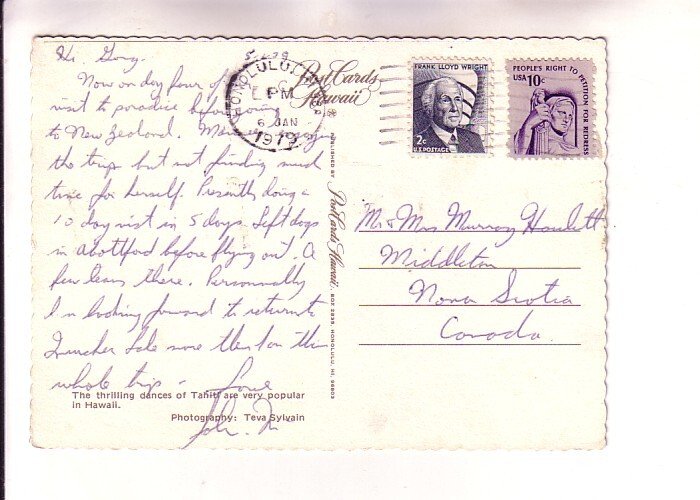 Hi, Gang.
Now on day four of
visit to paradise before going
to New Zealand.
the trip but not finding much
time for herself. Presently doing a
10 day visit in 5 days. Left dogs
in Abottford before flying out. A
few tears there. Personally
I'm looking forward to return to
Lake more than on this
whole trip -
Love
John.
The thrilling dances of Tahiti are very popular
in Hawaii.
Photography: Teva Sylvain
HONOLULU,
PM
6 JAN
1979
Post Cards
Hawaii
PUBLISHED BY Post Cards Hawaii, BOX 2839, HONOLULU, HI. 96803
FRANK LLOYD WRIGHT
2c
U.S. POSTAGE
PEOPLE'S RIGHT TO PETITION FOR REDRESS
USA 10c
Mr & Mrs Murray Howlett
Middleton
Nova Scotia
Canada.